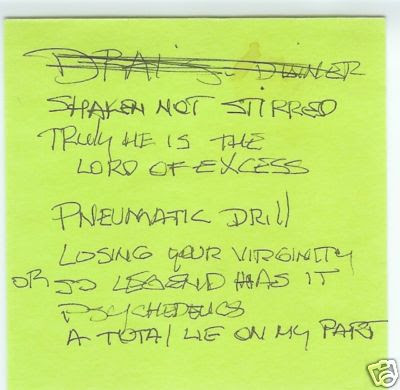 DRAI'S - DINNER
SHAKEN NOT STIRRED
TRULY HE IS THE
LORD OF EXCESS
PNEUMATIC DRILL
LOSING YOUR VIRGINITY
OR SO LEGEND HAS IT
PSYCHEDELICS
A TOTAL LIE ON MY PART